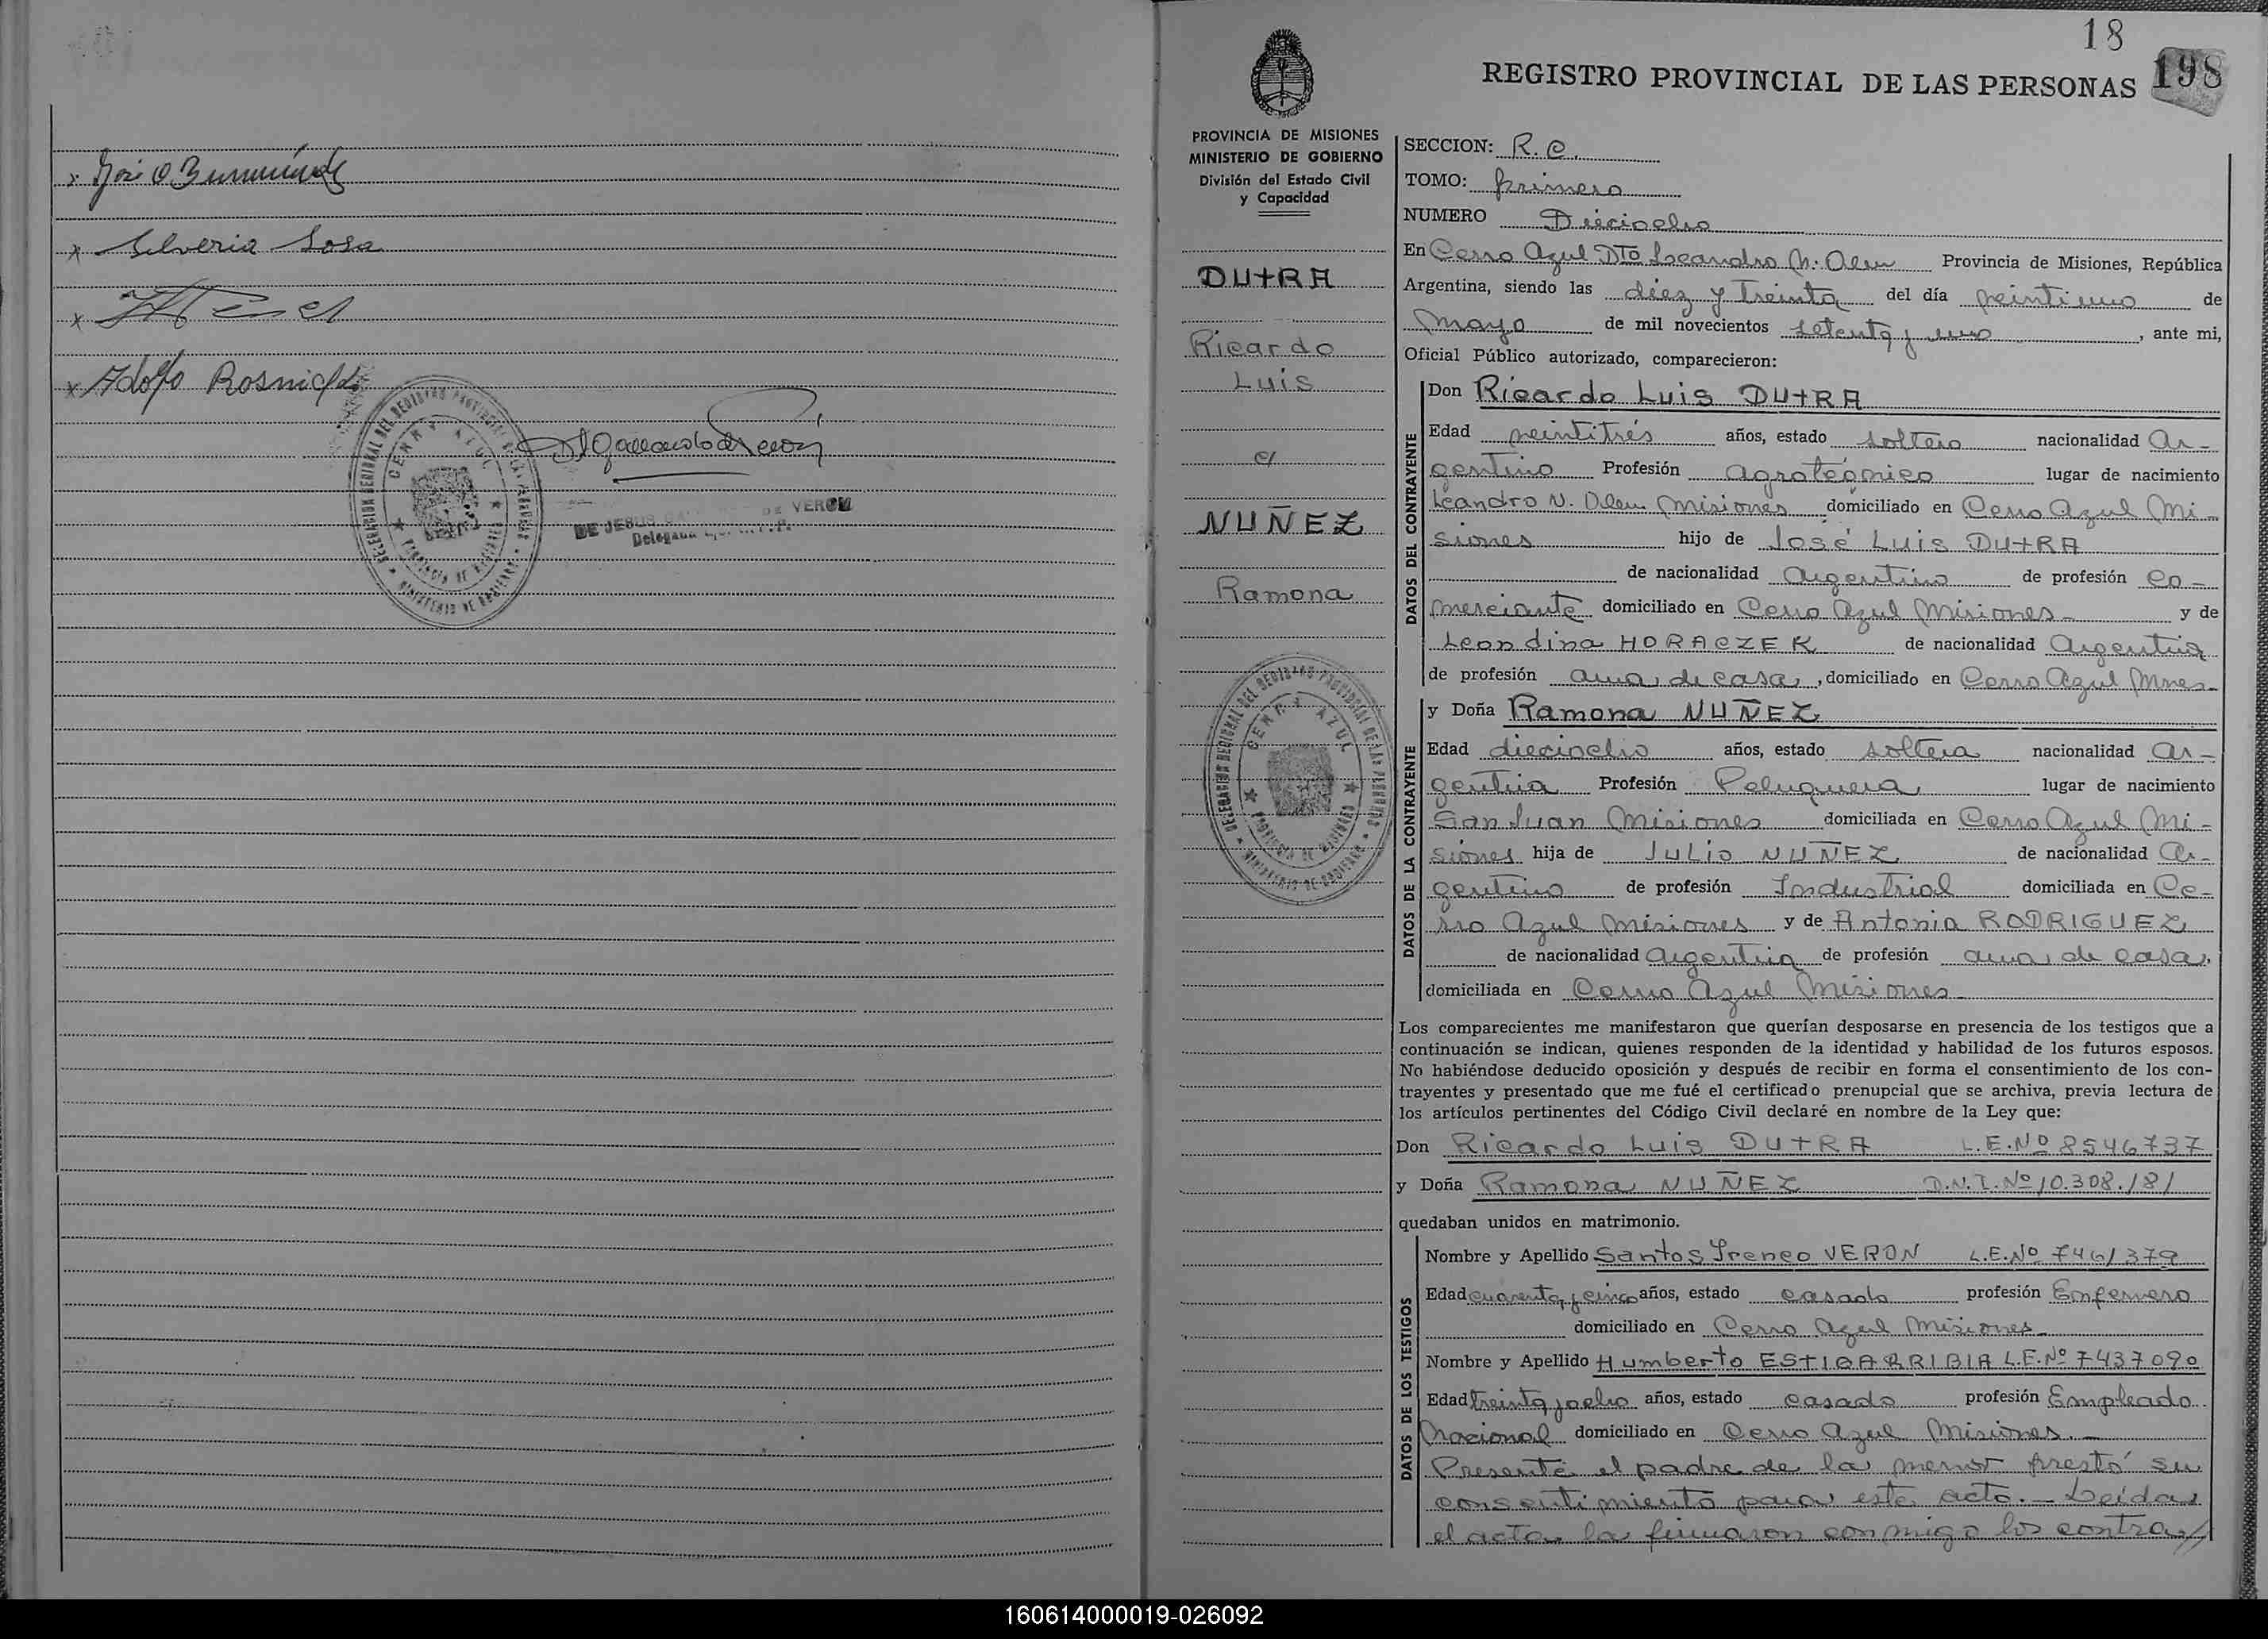 Silveria Sosa
Adolfo
DELEGACION REGIONAL DEL REGISTRO PROVINCIAL DE LAS PERSONAS
CERRO AZUL
PROVINCIA DE MISIONES
MINISTERIO DE GOBIERNO
DE JESUS VERON
Delegada
18
198
REGISTRO PROVINCIAL DE LAS PERSONAS
PROVINCIA DE MISIONES
MINISTERIO DE GOBIERNO
División del Estado Civil
y Capacidad
DUtRA
Ricardo
Luis
c/
NUÑEZ
Ramona
DELEGACION REGIONAL DEL REGISTRO PROVINCIAL DE LAS PERSONAS
CERRO AZUL
PROVINCIA DE MISIONES
MINISTERIO DE GOBIERNO
SECCION: R.C.
TOMO: primero
NUMERO Dieciocho
En Cerro Azul Dto Leandro N. Alem Provincia de Misiones, República
Argentina, siendo las diez y treinta del día veintiuno de
Mayo de mil novecientos setenta y uno, ante mi,
Oficial Público autorizado, comparecieron:
DATOS DEL CONTRAYENTE
Don Ricardo Luis DUtRA
Edad veintitrés años, estado soltero nacionalidad Ar-
gentino Profesión agrotécnico lugar de nacimiento
Leandro N. Alem Misiones domiciliado en Cerro Azul Mi-
siones hijo de José Luis DUtRA
de nacionalidad Argentino de profesión Co-
merciante domiciliado en Cerro Azul Misiones- y de
Leondina HORACZEK de nacionalidad Argentina
de profesión ama de casa, domiciliado en Cerro Azul Mnes-
DATOS DE LA CONTRAYENTE
y Doña Ramona NUÑEZ
Edad dieciocho años, estado soltera nacionalidad Ar-
gentina Profesión Peluquera lugar de nacimiento
San Juan Misiones domiciliada en Cerro Azul Mi-
siones hija de Julio NUÑEZ de nacionalidad Ar-
gentino de profesión Industrial domiciliada en Ce-
rro Azul Misiones y de Antonia RODRIGUEZ
de nacionalidad Argentina de profesión ama de casa,
domiciliada en Cerro Azul Misiones-
Los comparecientes me manifestaron que querían desposarse en presencia de los testigos que a
continuación se indican, quienes responden de la identidad y habilidad de los futuros esposos.
No habiéndose deducido oposición y después de recibir en forma el consentimiento de los con-
trayentes y presentado que me fué el certificado prenupcial que se archiva, previa lectura de
los artículos pertinentes del Código Civil declaré en nombre de la Ley que:
Don Ricardo Luis DUtRA L.E.Nº 8546737
y Doña Ramona NUÑEZ D.N.I.Nº 10.308.181
quedaban unidos en matrimonio.
DATOS DE LOS TESTIGOS
Nombre y Apellido Santos Ireneo VERON L.E.Nº 7461379
Edad cuarenta y cinco años, estado casado profesión Enfermero
domiciliado en Cerro Azul Misiones-
Nombre y Apellido Humberto EStIGARRIBIA L.E.Nº 7437090
Edad treinta y ocho años, estado casado profesión Empleado
Nacional domiciliado en Cerro Azul Misiones.-
Presente el padre de la menor prestó su
consentimiento para este acto.- Leída
el acta la firmaron conmigo los contra//
160614000019-026092